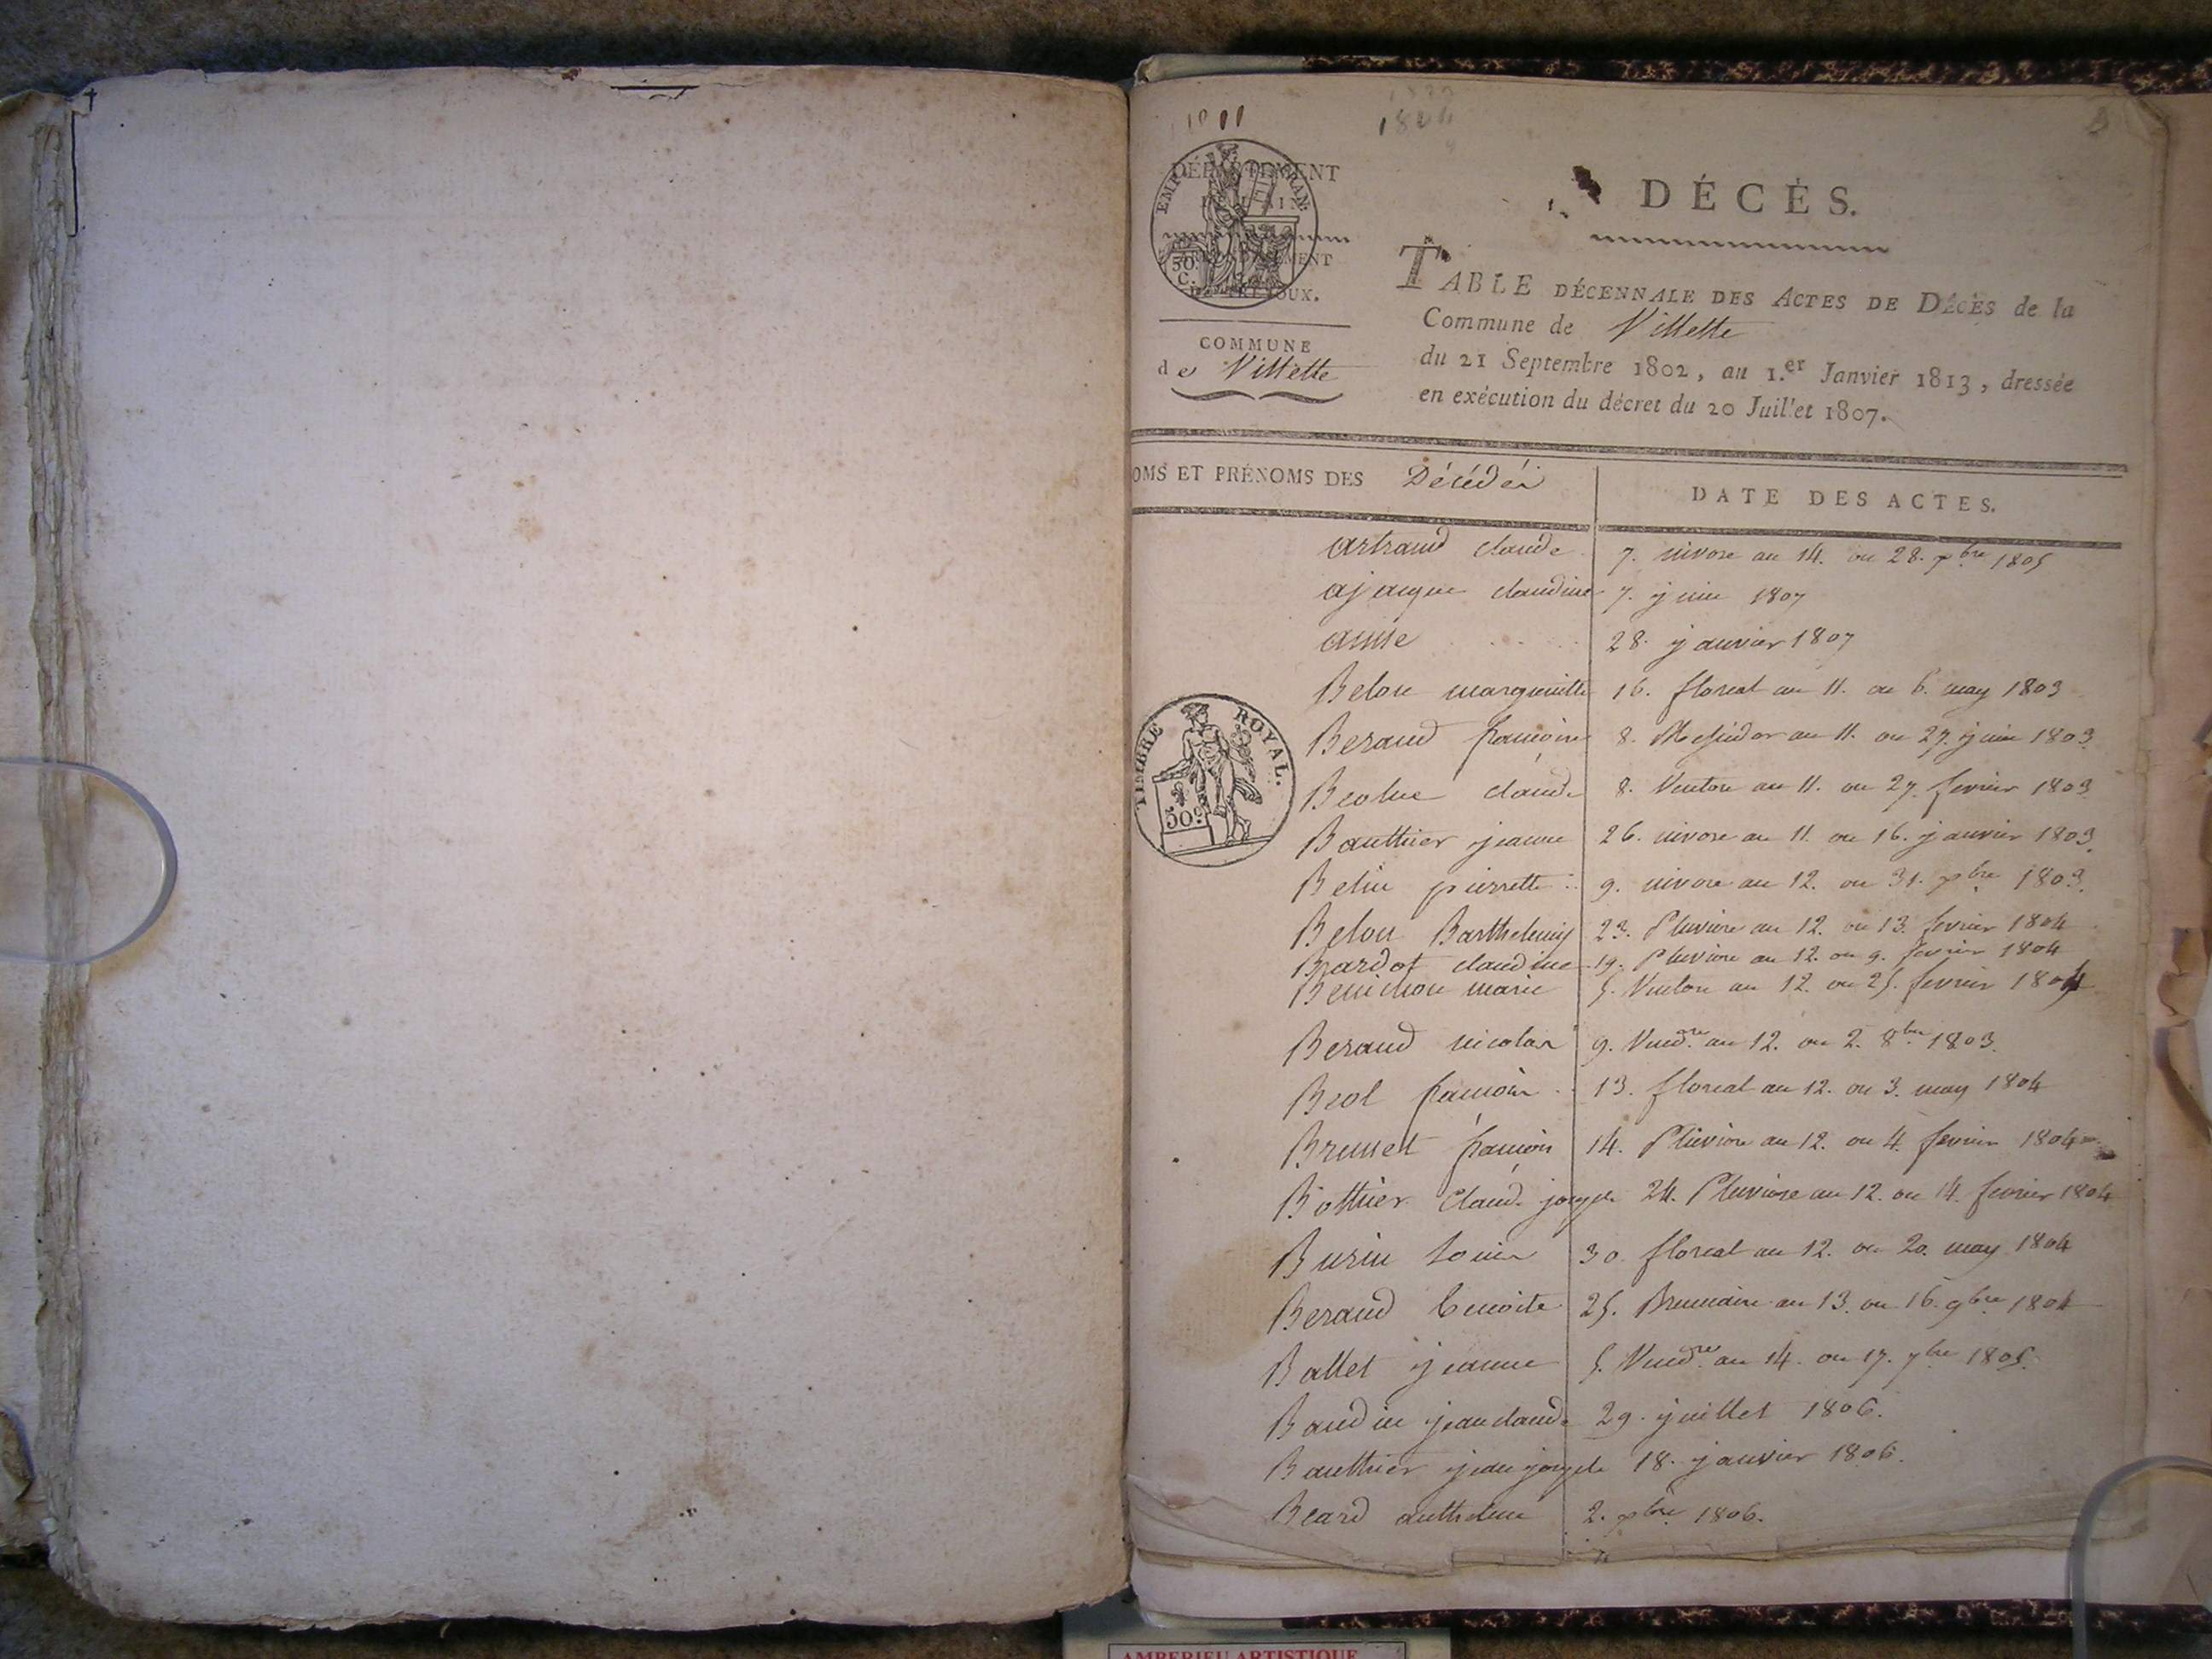 1811
DÉCÈS.
DÉPARTEMENT
DE L'AIN
EMP FRAN.
50 C.
ARRONDISSEMENT
DE TRÉVOUX.
COMMUNE
de Villette
TABLE DÉCENNALE DES ACTES DE DÉCÈS de la
Commune de Villette
du 21 Septembre 1802, au 1.er Janvier 1813, dressée
en exécution du décret du 20 Juillet 1807.
OMS ET PRÉNOMS DES Décédés DATE DES ACTES.
artraud claude 7. nivose an 14. ou 28. xbre 1805
ajacque claudine 7. juin 1807
28. janvier 1807
Belon margueritte 16. floreal an 11. ou 6. may 1803
TIMBRE ROYAL.
50c.
Beraud francois 8. Messidor an 11. ou 27. juin 1803
claude 8. Ventose an 11. ou 27. fevrier 1803
Bauthier jeanne 26. nivose an 11. ou 16. janvier 1803.
Belin pierrette 9. nivose an 12. ou 31. xbre 1803.
Belon Barthelemy 23. Pluviose an 12. ou 13. fevrier 1804
Bardot claudine 19. Pluviose an 12. ou 9. fevrier 1804
Benichon marie 5. Ventose an 12. ou 25. fevrier 1804
Beraud nicolas 9. Vendre an 12. ou 2. 8bre 1803.
Beol francois 13. floreal an 12. ou 3. may 1804
Brunet francois 14. Pluviose an 12. ou 4. fevrier 1804
Bottier Claud. joseph 24. Pluviose an 12. ou 14. fevrier 1804
Burin Louis 30. floreal an 12. ou 20. may 1804
Beraud benoite 25. Brumaire an 13. ou 16. 9bre 1804
Ballet jeanne 5. Vendre an 14. ou 17. 7bre 1805.
Baudin jean claude 29. juillet 1806.
Bauthier jean joseph 18. janvier 1806.
Beard anthelme 2. xbre 1806.
AMBERIEU ARTISTIQUE